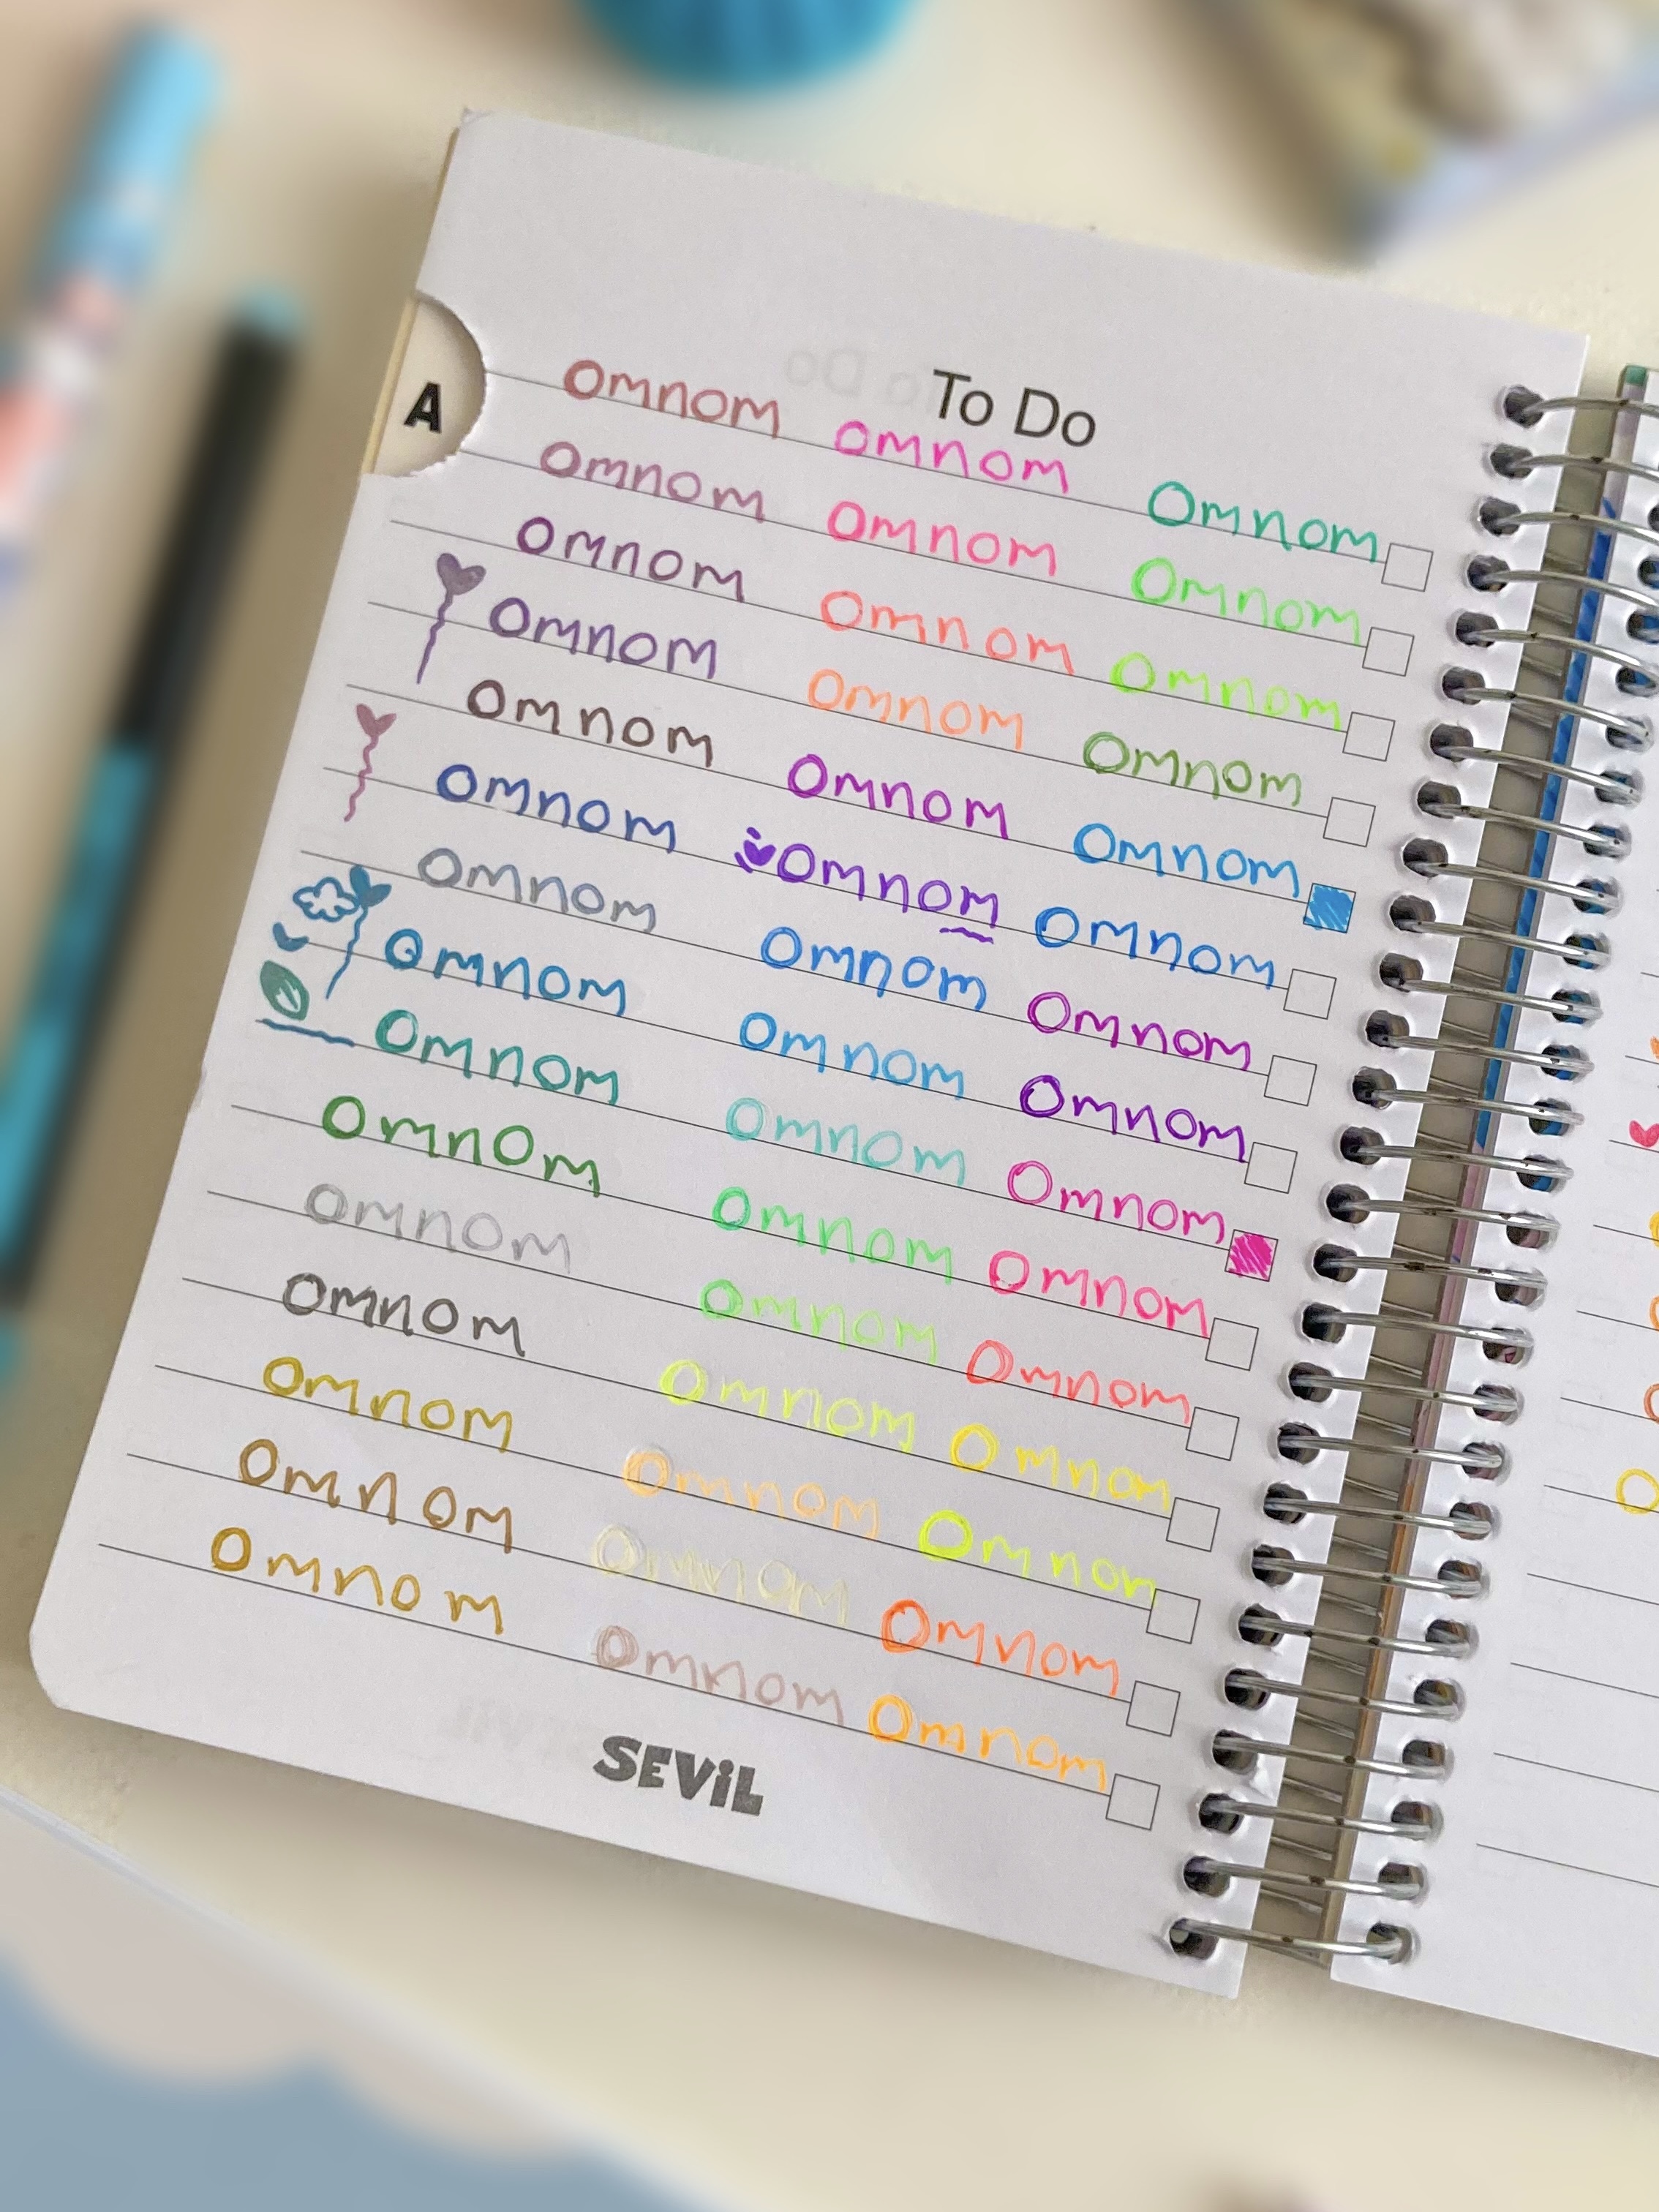 To Do
A
Omnom Omnom Omnom
Omnom Omnom Omnom
Omnom Omnom Omnom
Omnom Omnom Omnom
Omnom Omnom Omnom
Omnom Omnom Omnom
Omnom Omnom Omnom
Omnom Omnom Omnom
Omnom Omnom Omnom
Omnom Omnom Omnom
Omnom Omnom Omnom
Omnom Omnom Omnom
Omnom Omnom Omnon
Omnom Omnom Omnom
Omnom Omnom Omnom
SEViL